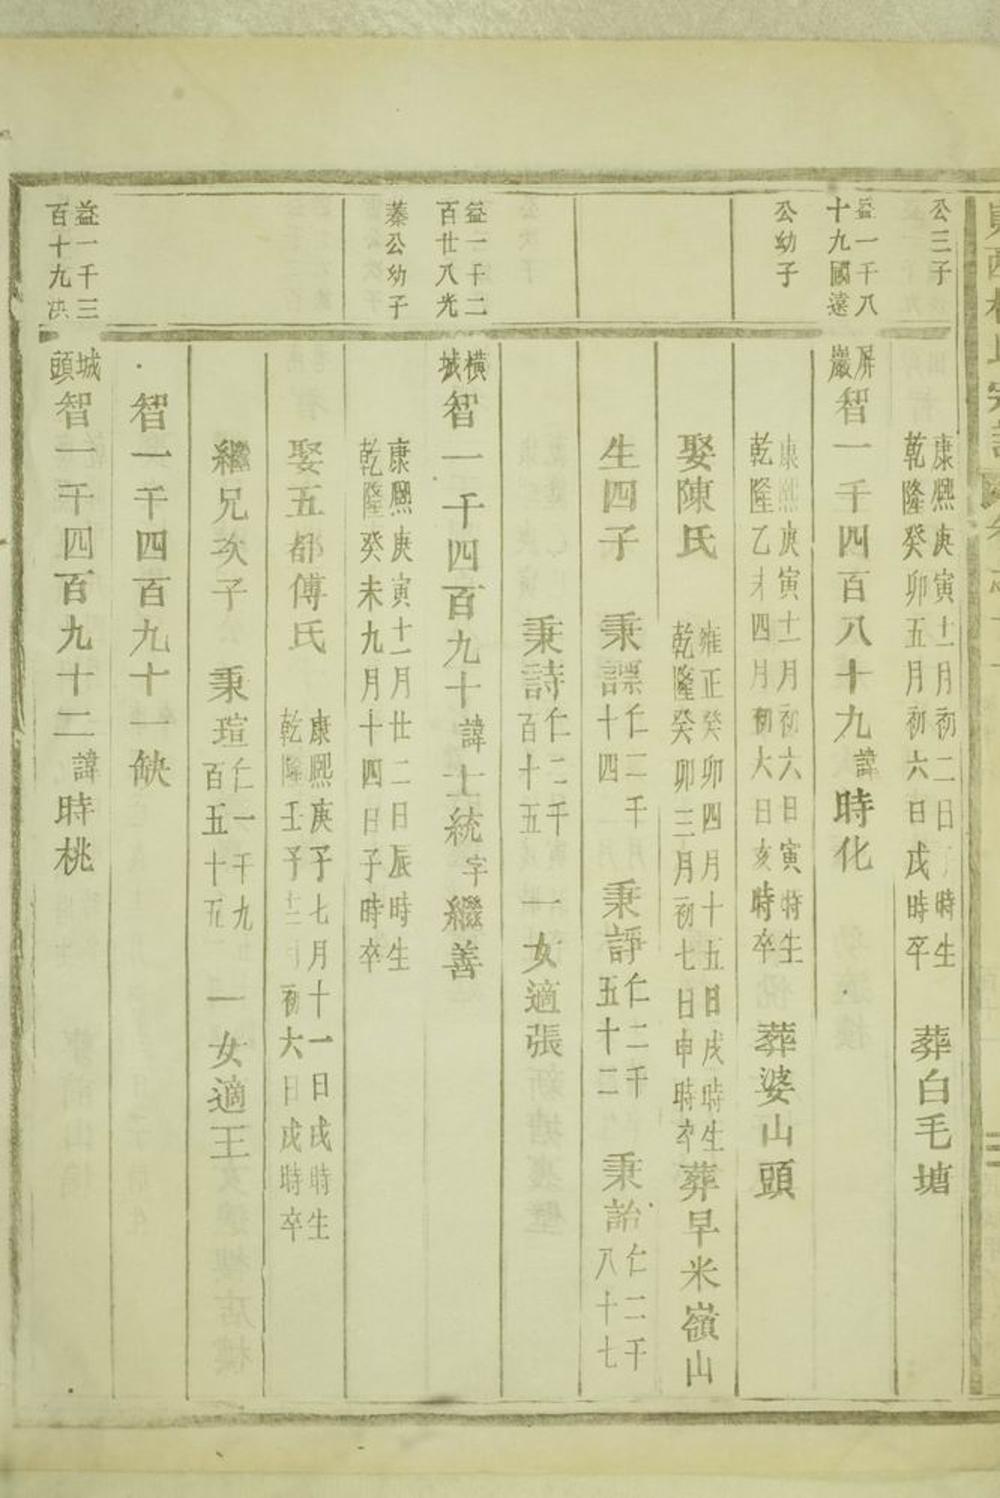 公三子
康熈庚寅十二月初二日時生
乾隆癸卯五月初六日戌時卒
葬白毛塘
益一千八
十九國遠
屏
巖
智一千四百八十九諱時化
公幼子
康熈庚寅十二月初六日寅時生
乾隆乙未四月初六日亥時卒
葬婆山頭
娶陳氏
雍正癸卯四月十五日戌時生
乾隆癸卯三月初七日申時卒
葬早米嶺山
生四子 秉謜仁二千十四 秉諍仁二千五十二 秉詒仁二千八十七
秉詩仁二千百十五 一女適張
益一千二
百廿八光
橫
城
智一千四百九十諱士統字繼善
蓁公幼子
康熈庚寅十二月廿二日辰時生
乾隆癸未九月十四日子時卒
娶五都傅氏
康熈庚子七月十一日戌時生
乾隆壬子十二月初六日戌時卒
繼兄次子 秉瑄仁一千九百五十五 一女適王
智一千四百九十一缺
益一千三
百十九洪
城
頭
智一千四百九十二諱時桃